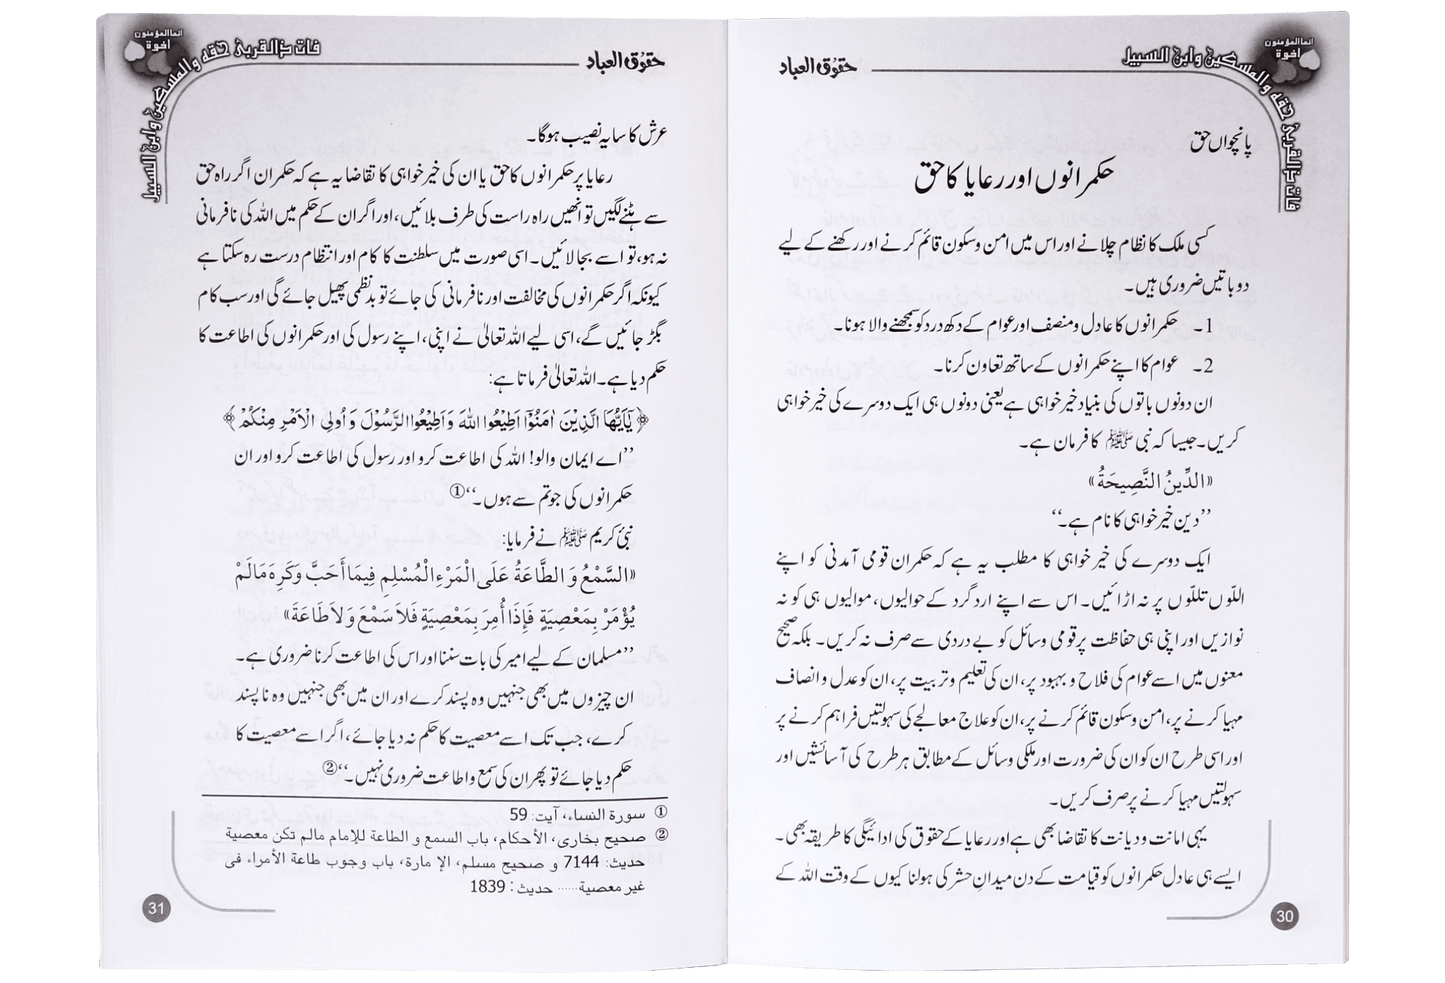 حقوق العباد
فات ذالقربىٰ حقه والمسكين وابن السبيل
انما المؤمنون
اخوة
پانچواں حق
حکمرانوں اور رعایا کا حق
کسی ملک کا نظام چلانے اور اس میں امن و سکون قائم کرنے اور رکھنے کے لیے
دو باتیں ضروری ہیں۔
1۔ حکمرانوں کا عادل و منصف اور عوام کے دکھ درد کو سمجھنے والا ہونا۔
2۔ عوام کا اپنے حکمرانوں کے ساتھ تعاون کرنا۔
ان دونوں باتوں کی بنیاد خیر خواہی ہے یعنی دونوں ہی ایک دوسرے کی خیر خواہی
کریں۔ جیسا کہ نبی ﷺ کا فرمان ہے۔
«الدِّينُ النَّصِيحَةُ»
’’دین خیر خواہی کا نام ہے۔‘‘
ایک دوسرے کی خیر خواہی کا مطلب یہ ہے کہ حکمران قومی آمدنی کو اپنے
اللّوں تللّوں پر نہ اڑائیں۔ اس سے اپنے ارد گرد کے حوالیوں، موالیوں ہی کو نہ
نوازیں اور اپنی ہی حفاظت پر قومی وسائل کو بے دردی سے صرف نہ کریں۔ بلکہ صحیح
معنوں میں اسے عوام کی فلاح و بہبود پر، ان کی تعلیم و تربیت پر، ان کو عدل و انصاف
مہیا کرنے پر، امن و سکون قائم کرنے پر، ان کو علاج معالجے کی سہولتیں فراہم کرنے پر
اور اسی طرح ان کو ان کی ضرورت اور ملکی وسائل کے مطابق ہر طرح کی آسائشیں اور
سہولتیں مہیا کرنے پر صرف کریں۔
یہی امانت و دیانت کا تقاضا بھی ہے اور رعایا کے حقوق کی ادائیگی کا طریقہ بھی۔
ایسے ہی عادل حکمرانوں کو قیامت کے دن میدانِ حشر کی ہولناکیوں کے وقت اللہ کے
30
حقوق العباد
فات ذالقربىٰ حقه والمسكين وابن السبيل
انما المؤمنون
اخوة
عرش کا سایہ نصیب ہوگا۔
رعایا پر حکمرانوں کا حق یا ان کی خیر خواہی کا تقاضا یہ ہے کہ حکمران اگر راہ حق
سے ہٹنے لگیں تو انھیں راہ راست کی طرف بلائیں، اور اگر ان کے حکم میں اللہ کی نافرمانی
نہ ہو، تو اسے بجا لائیں۔ اسی صورت میں سلطنت کا کام اور انتظام درست رہ سکتا ہے
کیونکہ اگر حکمرانوں کی مخالفت اور نافرمانی کی جائے تو بدنظمی پھیل جائے گی اور سب کام
بگڑ جائیں گے، اسی لیے اللہ تعالیٰ نے اپنی، اپنے رسول کی اور حکمرانوں کی اطاعت کا
حکم دیا ہے۔ اللہ تعالیٰ فرماتا ہے:
﴿يٰٓاَيُّهَا الَّذِيْنَ اٰمَنُوْٓا اَطِيْعُوا اللّٰهَ وَاَطِيْعُوا الرَّسُوْلَ وَاُولِى الْاَمْرِ مِنْكُمْ﴾
’’اے ایمان والو! اللہ کی اطاعت کرو اور رسول کی اطاعت کرو اور ان
حکمرانوں کی جو تم سے ہوں۔‘‘①
نبیٔ کریم ﷺ نے فرمایا:
«السَّمْعُ وَ الطَّاعَةُ عَلَى الْمَرْءِ الْمُسْلِمِ فِيمَا أَحَبَّ وَكَرِهَ مَالَمْ
يُؤْمَرْ بِمَعْصِيَةٍ فَإِذَا أُمِرَ بِمَعْصِيَةٍ فَلَا سَمْعَ وَلَا طَاعَةَ»
’’مسلمان کے لیے امیر کی بات سننا اور اس کی اطاعت کرنا ضروری ہے۔
ان چیزوں میں بھی جنہیں وہ پسند کرے اور ان میں بھی جنہیں وہ ناپسند
کرے، جب تک اسے معصیت کا حکم نہ دیا جائے، اگر اسے معصیت کا
حکم دیا جائے تو پھر ان کی سمع و اطاعت ضروری نہیں۔‘‘②
① سورة النساء، آیت: 59
② صحیح بخاری، الأحکام، باب السمع و الطاعة للإمام مالم تکن معصیة
حدیث: 7144 و صحیح مسلم، الإمارة، باب وجوب طاعة الأمراء فی
غیر معصیة...... حدیث: 1839
31